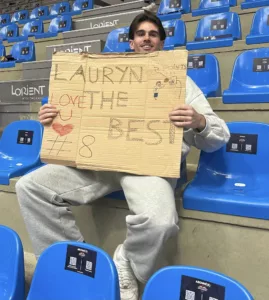 LORIENT
LORIENT
LORIENT
LAURYN
LOVE THE
U BEST
# 8